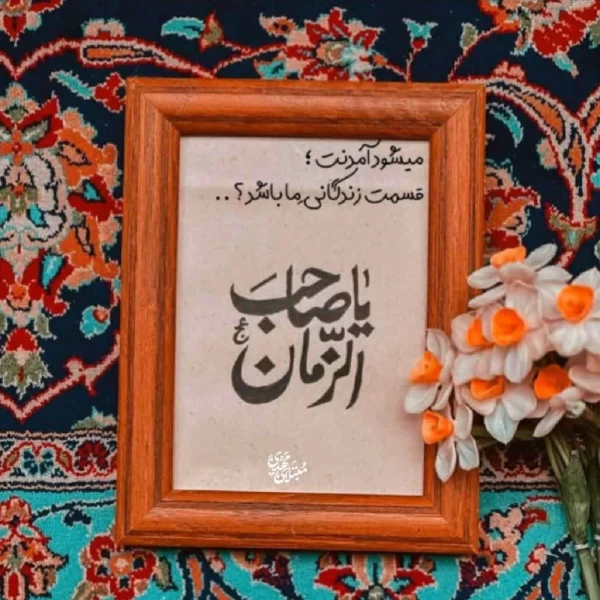 میشود آمدنت ؛
قسمت زندگانیِ ما باشد ؟ . .
یا صاحب
الزمان
عج
مبتلای مهدی